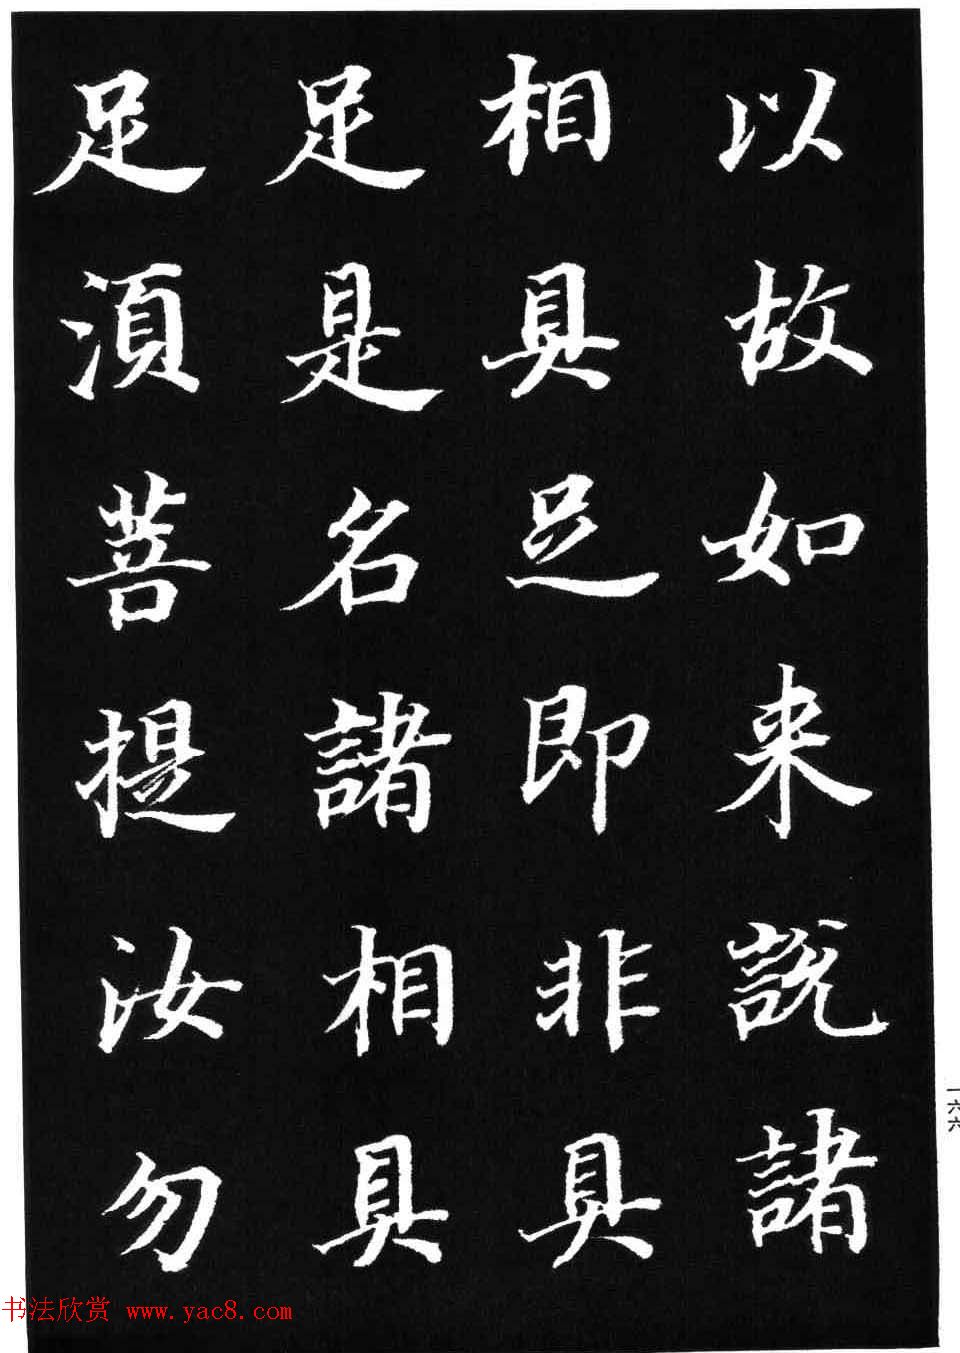 以故如来説諸
相具足即非具
足是名諸相具
足湏菩提汝勿
一六六
书法欣赏 www.yac8.com